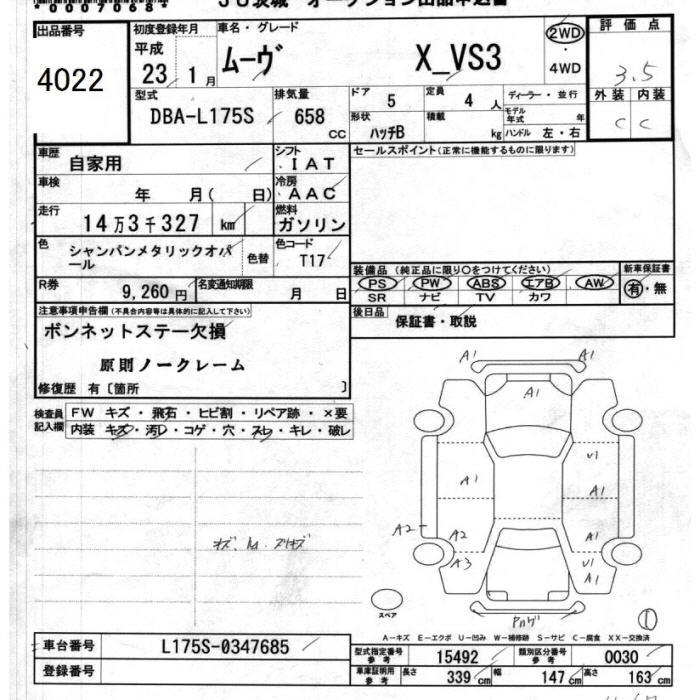 *00070688*
JU茨城 オークション出品申込書
出品番号 4022
初度登録年月 平成 23年 1月
車名・グレード ムーヴ X_VS3
2WD ・ 4WD
評価点 3.5
外装 C 内装 C
型式 DBA-L175S
排気量 658 CC
ドア 5 定員 4 人 ディーラー・並行
形状 ハッチB 積載 kg モデル年式 年
ハンドル 左・右
車歴 自家用
シフト IAT
セールスポイント(正常に機能するものに限ります)
車検 年 月( 日)
冷房 AAC
走行 14万3千327 km
燃料 ガソリン
色 シャンパンメタリックオパール 色替
色コード T17
装備品 (純正品に限り○をつけてください) 新車保証書
PS PW ABS エアB AW 有・無
SR ナビ TV カワ
R券 9,260円
名変通知期限 月 日
後日品 保証書・取説
注意事項申告欄(不具合内容等は具体的に記入して下さい)
ボンネットステー欠損
原則ノークレーム
修復歴 有〔箇所 〕
検査員記入欄
FW キズ・飛石・ヒビ割・リペア跡・×要
内装 キズ・汚レ・コゲ・穴・スレ・キレ・破レ
A1 A1
A1
U1
A1 A1
A2 A2
A3 U1
A1
スペア
A-キズ E-エクボ U-凹み W-補修跡 S-サビ C-腐食 XX-交換済
車台番号 L175S-0347685
型式指定番号 参考 15492 類別区分番号 参考 0030
登録番号
車庫証明用 参考 長さ 339 cm 幅 147 cm 高さ 163 cm